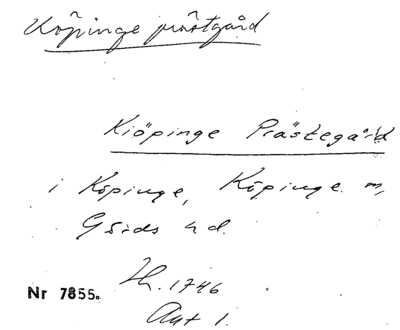 Köpinge prästgård
Kiöpinge Prästegård
i Köpinge, Köpinge m,
Gärds hd.
Nr 7855. Th. 1746
Aut 1.